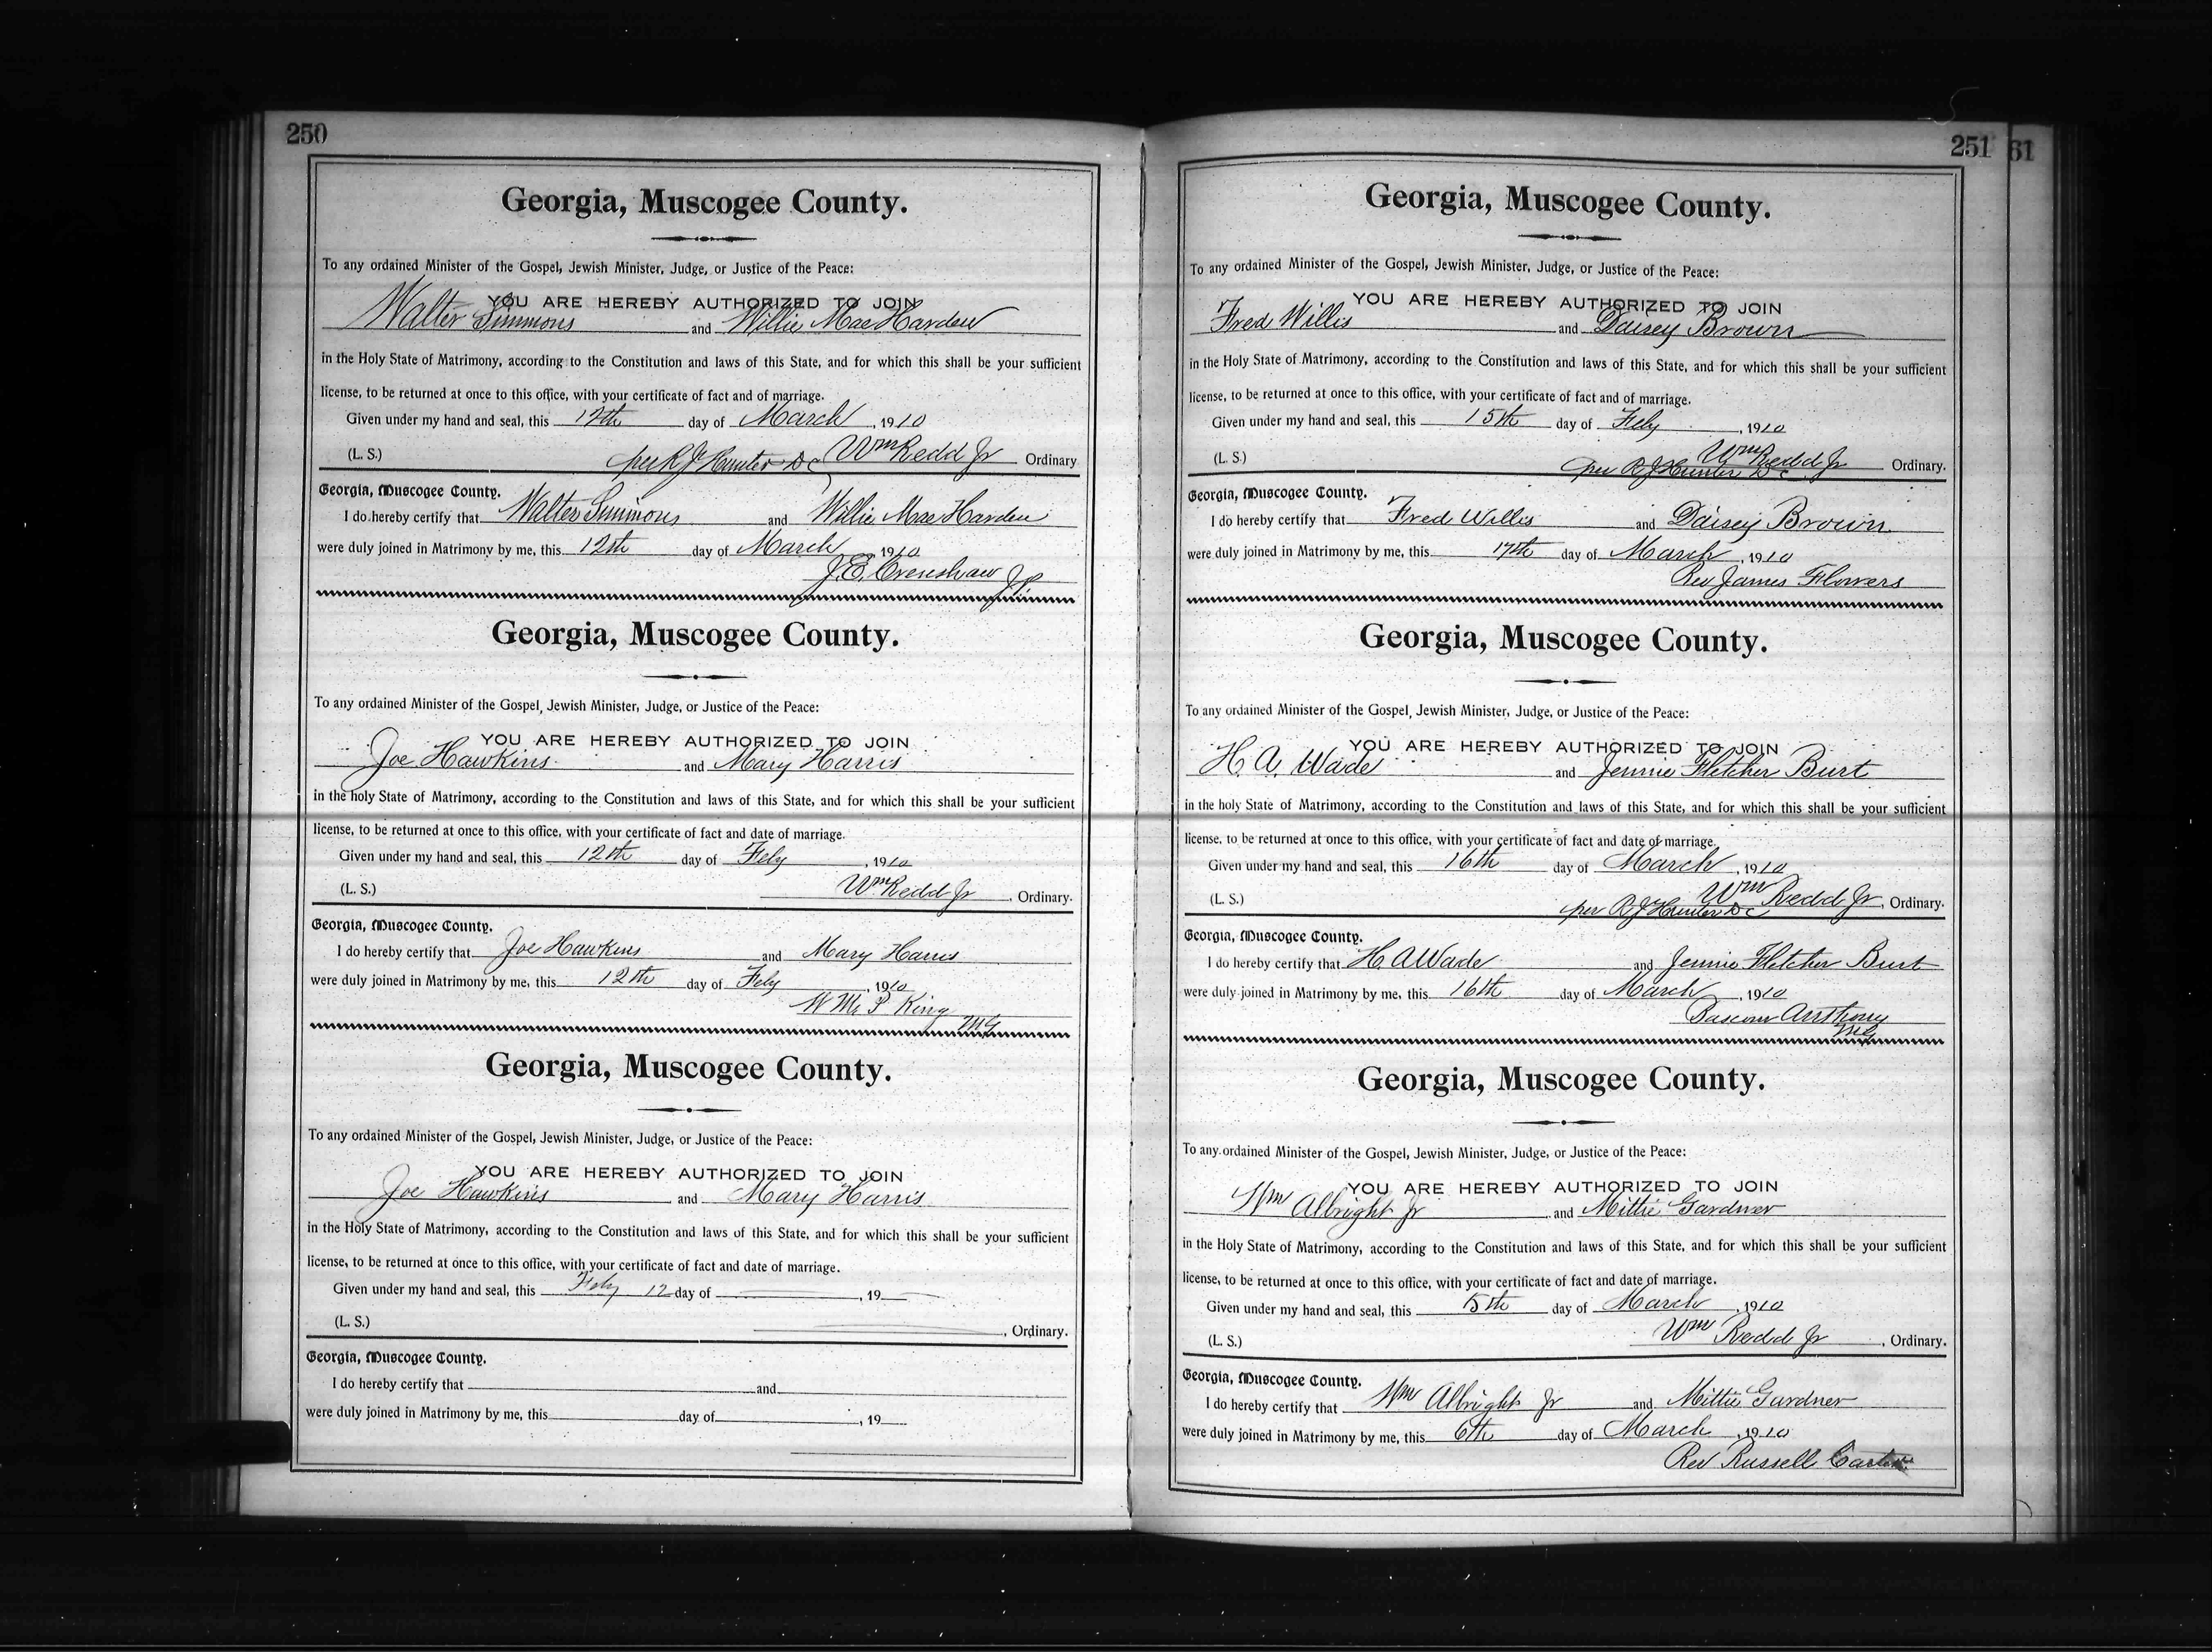 250
Georgia, Muscogee County.
To any ordained Minister of the Gospel, Jewish Minister, Judge, or Justice of the Peace:
YOU ARE HEREBY AUTHORIZED TO JOIN
Walter Simmons and Willie Mae Harden
in the Holy State of Matrimony, according to the Constitution and laws of this State, and for which this shall be your sufficient
license, to be returned at once to this office, with your certificate of fact and of marriage.
Given under my hand and seal, this 12th day of March, 1910
(L. S.) per R J Hunter D C Wm Redd Jr Ordinary
Georgia, Muscogee County.
I do hereby certify that Walter Simmons and Willie Mae Harden
were duly joined in Matrimony by me, this 12th day of March, 1910
J. E. Crenshaw J.P.
Georgia, Muscogee County.
To any ordained Minister of the Gospel, Jewish Minister, Judge, or Justice of the Peace:
YOU ARE HEREBY AUTHORIZED TO JOIN
Joe Hawkins and Mary Harris
in the holy State of Matrimony, according to the Constitution and laws of this State, and for which this shall be your sufficient
license, to be returned at once to this office, with your certificate of fact and date of marriage.
Given under my hand and seal, this 12th day of Feby, 1910
(L. S.) Wm Redd Jr, Ordinary.
Georgia, Muscogee County.
I do hereby certify that Joe Hawkins and Mary Harris
were duly joined in Matrimony by me, this 12th day of Feby, 1910
P King
MG
Georgia, Muscogee County.
To any ordained Minister of the Gospel, Jewish Minister, Judge, or Justice of the Peace:
YOU ARE HEREBY AUTHORIZED TO JOIN
Joe Hawkins and Mary Harris
in the Holy State of Matrimony, according to the Constitution and laws of this State, and for which this shall be your sufficient
license, to be returned at once to this office, with your certificate of fact and date of marriage.
Given under my hand and seal, this Feby 12 day of , 19
(L. S.) , Ordinary.
Georgia, Muscogee County.
I do hereby certify that and
were duly joined in Matrimony by me, this day of , 19
251 61
Georgia, Muscogee County.
To any ordained Minister of the Gospel, Jewish Minister, Judge, or Justice of the Peace:
YOU ARE HEREBY AUTHORIZED TO JOIN
Fred Willis and Daisey Brown
in the Holy State of Matrimony, according to the Constitution and laws of this State, and for which this shall be your sufficient
license, to be returned at once to this office, with your certificate of fact and of marriage.
Given under my hand and seal, this 15th day of Feby, 1910
(L. S.) Wm Redd Jr Ordinary.
per R J Hunter D C
Georgia, Muscogee County.
I do hereby certify that Fred Willis and Daisey Brown
were duly joined in Matrimony by me, this 17th day of March, 1910
Rev James Flowers
Georgia, Muscogee County.
To any ordained Minister of the Gospel, Jewish Minister, Judge, or Justice of the Peace:
YOU ARE HEREBY AUTHORIZED TO JOIN
H. A. Wade and Jennie Fletcher Burt
in the holy State of Matrimony, according to the Constitution and laws of this State, and for which this shall be your sufficient
license, to be returned at once to this office, with your certificate of fact and date of marriage.
Given under my hand and seal, this 16th day of March, 1910
(L. S.) Wm Redd Jr, Ordinary.
per R J Hunter D C
Georgia, Muscogee County.
I do hereby certify that H. A Wade and Jennie Fletcher Burt
were duly joined in Matrimony by me, this 16th day of March, 1910
Bascom Anthony
MG
Georgia, Muscogee County.
To any ordained Minister of the Gospel, Jewish Minister, Judge, or Justice of the Peace:
YOU ARE HEREBY AUTHORIZED TO JOIN
Wm Albright Jr and Mittie Gardner
in the Holy State of Matrimony, according to the Constitution and laws of this State, and for which this shall be your sufficient
license, to be returned at once to this office, with your certificate of fact and date of marriage.
Given under my hand and seal, this 5th day of March, 1910
(L. S.) Wm Redd Jr, Ordinary.
Georgia, Muscogee County.
I do hereby certify that Wm Albright Jr and Mittie Gardner
were duly joined in Matrimony by me, this 6th day of March, 1910
Rev Russell Carter